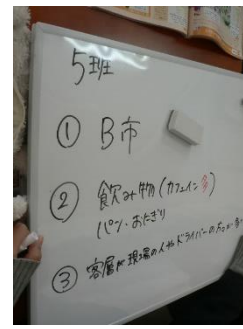 5班
① B市
② 飲み物(カフェイン多)
パン・おにぎり
③ 客層が現場の人やドライバーの方